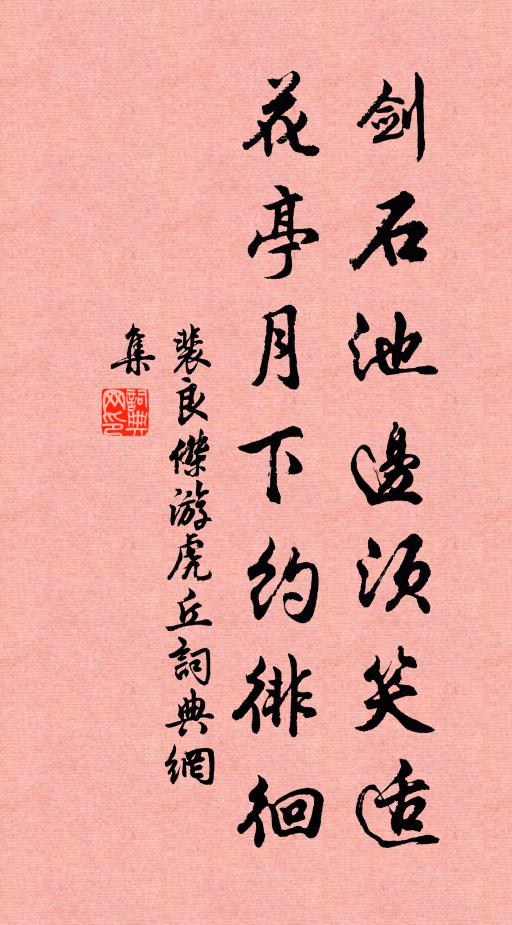 剑石池邊须笑适
花亭月下約徘徊
裴良傑游虎丘詞典網
集
詞典網印